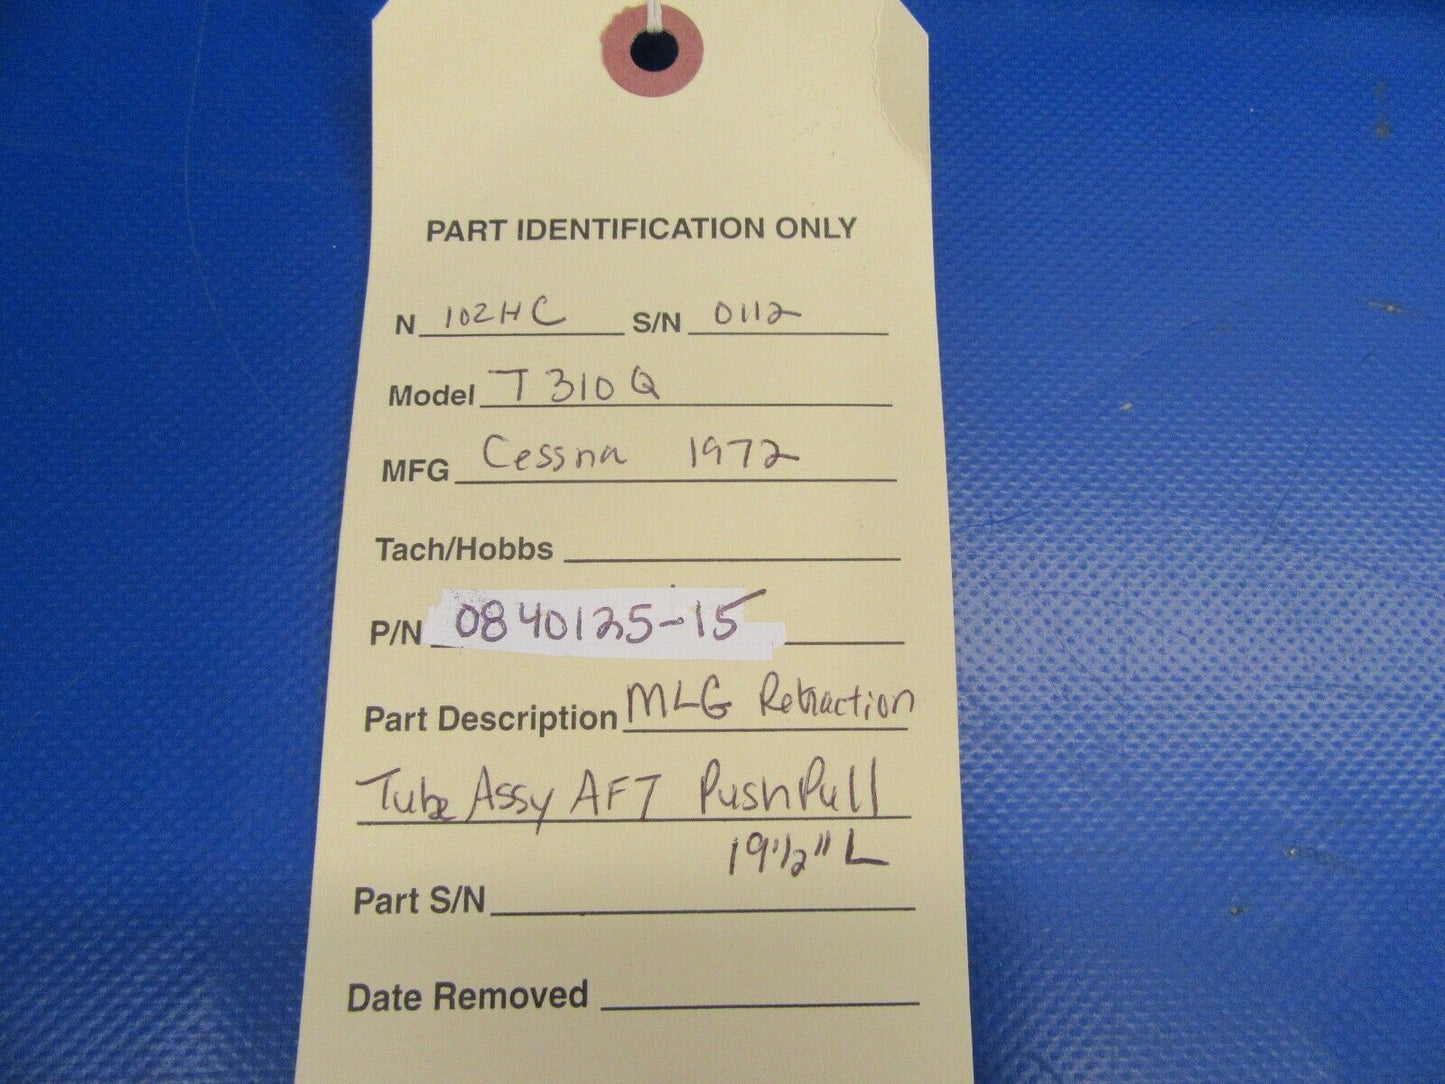 PART IDENTIFICATION ONLY
N 102HC S/N 0112
Model T310Q
MFG Cessna 1972
Tach/Hobbs
P/N 0840125-15
Part Description MLG Retraction
Tube Assy AFT PushPull
19 1/2" L
Part S/N
Date Removed